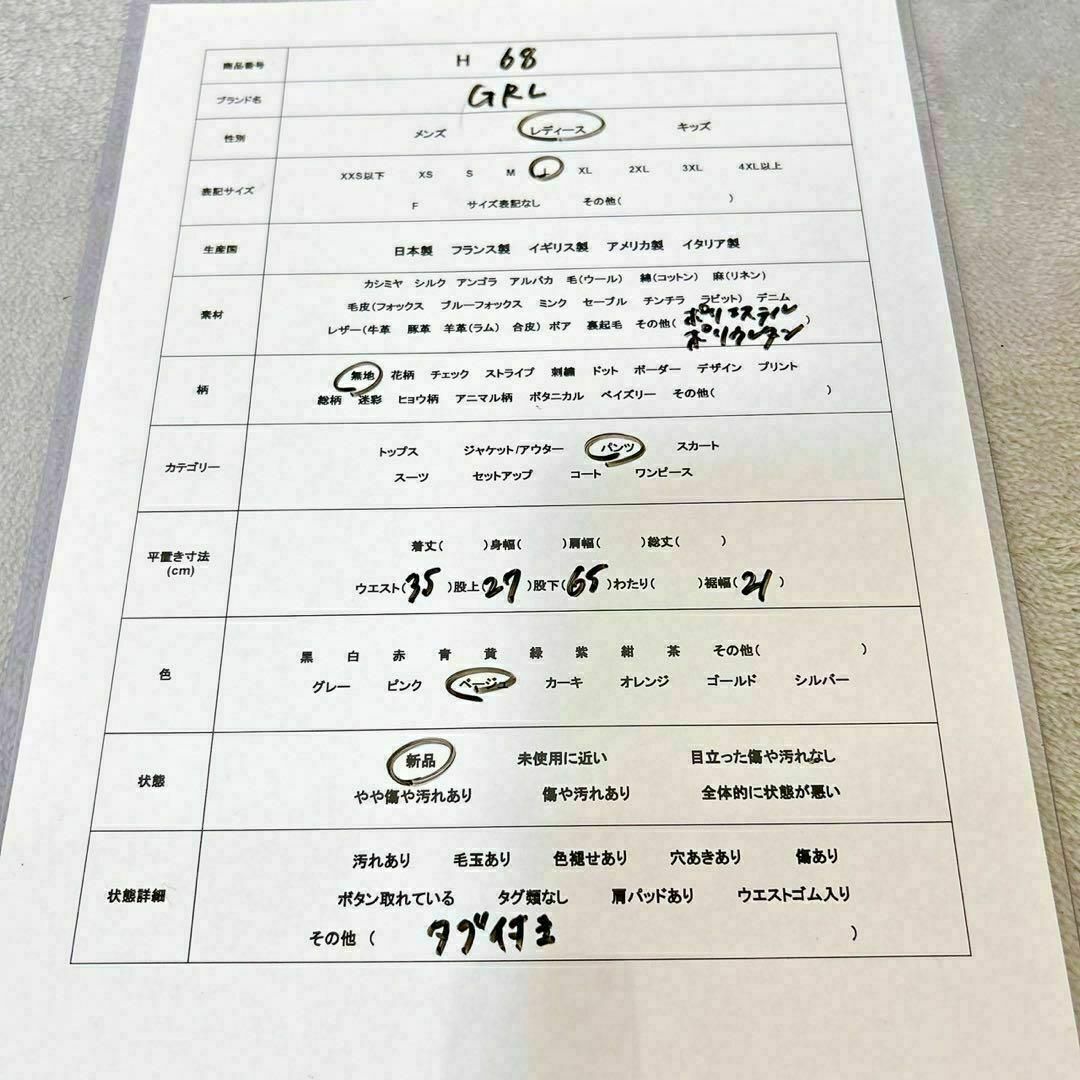 商品番号 H 68
ブランド名 GRL
性別 メンズ レディース キッズ
表記サイズ XXS以下 XS S M L XL 2XL 3XL 4XL以上
F サイズ表記なし その他( )
生産国 日本製 フランス製 イギリス製 アメリカ製 イタリア製
素材 カシミヤ シルク アンゴラ アルパカ 毛(ウール) 綿(コットン) 麻(リネン)
毛皮(フォックス ブルーフォックス ミンク セーブル チンチラ ラビット) デニム
レザー(牛革 豚革 羊革(ラム) 合皮) ボア 裏起毛 その他( ポリエステル
ポリウレタン )
柄 無地 花柄 チェック ストライプ 刺繍 ドット ボーダー デザイン プリント
総柄 迷彩 ヒョウ柄 アニマル柄 ボタニカル ペイズリー その他( )
カテゴリー トップス ジャケット/アウター パンツ スカート
スーツ セットアップ コート ワンピース
平置き寸法 着丈( )身幅( )肩幅( )総丈( )
(cm) ウエスト(35)股上(27)股下(65)わたり( )裾幅(21)
色 黒 白 赤 青 黄 緑 紫 紺 茶 その他( )
グレー ピンク ベージュ カーキ オレンジ ゴールド シルバー
状態 新品 未使用に近い 目立った傷や汚れなし
やや傷や汚れあり 傷や汚れあり 全体的に状態が悪い
状態詳細 汚れあり 毛玉あり 色褪せあり 穴あきあり 傷あり
ボタン取れている タグ類なし 肩パッドあり ウエストゴム入り
その他 ( タグ付き )